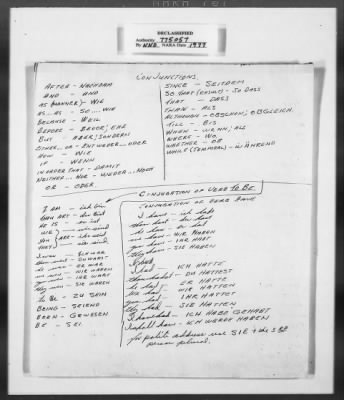 DECLASSIFIED
Authority 775057
By NND NARA Date 1977
CONJUNCTIONS
AFTER - NACHDEM
AND - UND
AS (MANNER) - WIE
AS... AS - SO.... WIE
BECAUSE - WEIL
BEFORE - BEVOR; EHE
BUT - ABER; SONDERN
EITHER.. OR - ENTWEDER.. ODER
HOW - WIE
IF - WENN
IN ORDER THAT - DAMIT
NEITHER... NOR - WEDER... NOCH
OR - ODER
SINCE - SEITDEM
SO THAT (RESULT) - SO DASS
THAT - DASS
THAN - ALS
ALTHOUGH - OBSCHON; OBGLEICH
TILL - BIS
WHEN - WENN; ALS
WHERE - WO
WHETHER - OB
WHILE (TEMPORAL) - WÄHREND
CONJUGATION OF VERB TO BE
I AM - ich bin
THOU ART - du bist
HE IS - er ist
WE - wir sind
YOU ARE - ihr seid
THEY - sie sind
I was - ICH WAR
thou wast - DU WARST
he was - ER WAR
we were - WIR WAREN
you were - IHR WART
they were - SIE WAREN
to Be - ZU SEIN
BEING - SEIEND
BEEN - GEWESEN
BE - SEI
CONJUGATION OF VERB HAVE
I have - ich habe
thou hast - du hast
he has - er hat
we have - WIR HABEN
you have - IHR HABT
they have - SIE HABEN
I had - ICH HATTE
thou hadst - DU HATTEST
he had - ER HATTE
we had - WIR HATTEN
you had - IHR HATTET
they had - SIE HATTEN
I have had - ICH HABE GEHABT
I shall have - ICH WERDE HABEN
for polite address use SIE + the 3rd
person plural.